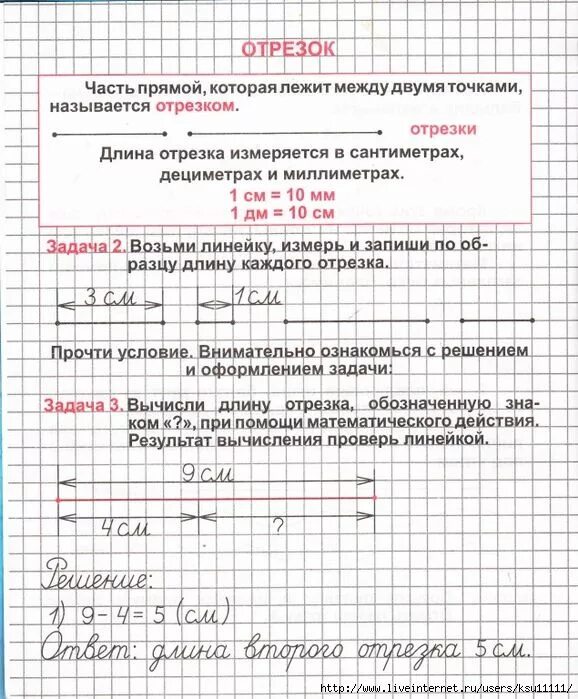 ОТРЕЗОК
Часть прямой, которая лежит между двумя точками,
называется отрезком.
отрезки
Длина отрезка измеряется в сантиметрах,
дециметрах и миллиметрах.
1 см = 10 мм
1 дм = 10 см
Задача 2. Возьми линейку, измерь и запиши по об-
разцу длину каждого отрезка.
3 см 1 см
Прочти условие. Внимательно ознакомься с решением
и оформлением задачи:
Задача 3. Вычисли длину отрезка, обозначенную зна-
ком «?», при помощи математического действия.
Результат вычисления проверь линейкой.
9 см
4 см ?
Решение:
1) 9 - 4 = 5 (см)
Ответ: длина второго отрезка 5 см.
http://www.liveinternet.ru/users/ksu11111/